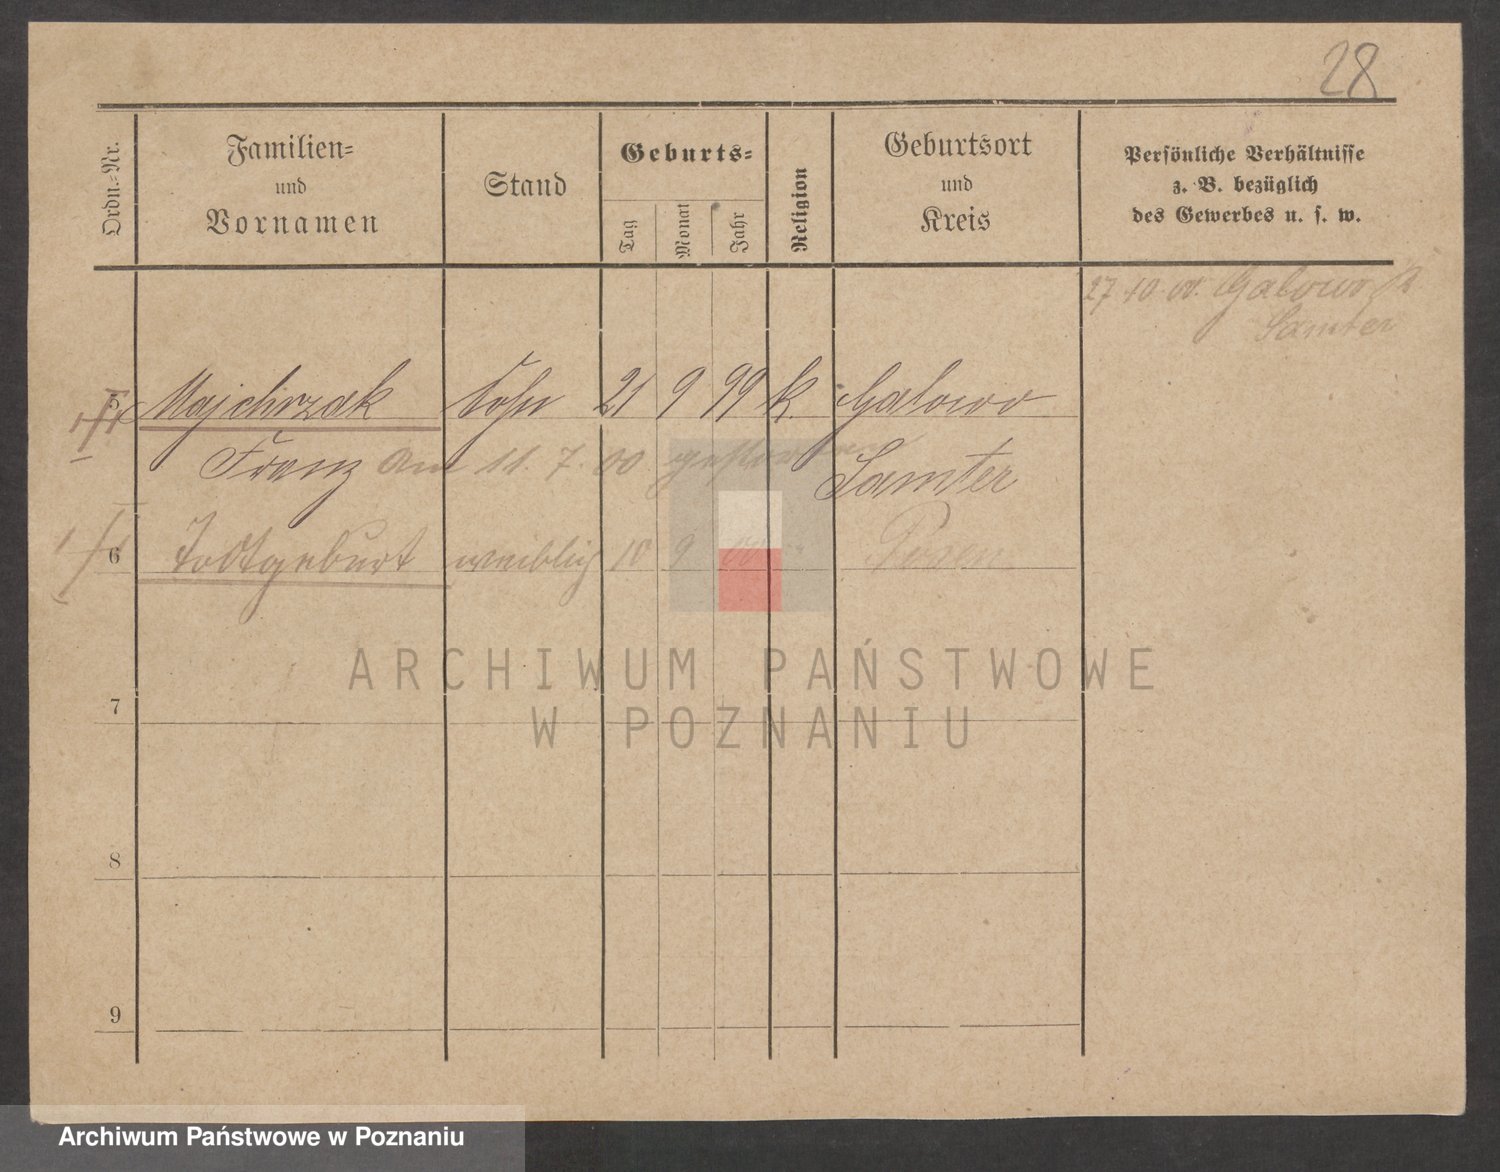 28
Ordn.-Nr.
Familien-
und
Vornamen
Stand
Geburts-
Tag
Monat
Jahr
Religion
Geburtsort
und
Kreis
Persönliche Verhältnisse
z. B. bezüglich
des Gewerbes u. s. w.
27 10 00. Galowo
Samter
5 Majchrzak Sohn 21 9 99 k. Galowo
Franz am 11. 7. 00 gestorben Samter
6 Todtgeburt weiblich 10 9 00 Posen
ARCHIWUM PAŃSTWOWE
W POZNANIU
7
8
9
Archiwum Państwowe w Poznaniu